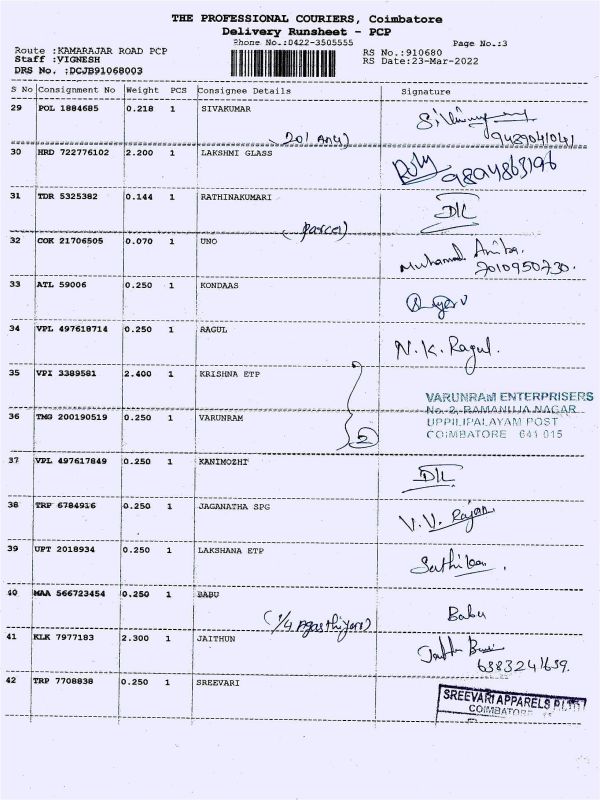 THE PROFESSIONAL COURIERS, Coimbatore
Delivery Runsheet - PCP
Phone No.:0422-3505555 Page No.:3
Route :KAMARAJAR ROAD PCP RS No.:910680
Staff :VIGNESH RS Date:23-Mar-2022
DRS No. :DCJB91068003
S No Consignment No Weight PCS Consignee Details Signature
29 POL 1884685 0.218 1 SIVAKUMAR
30 HRD 722776102 2.200 1 LAKSHMI GLASS 9894863196
31 TDR 5325382 0.144 1 RATHINAKUMARI
(parcel)
32 COK 21706505 0.070 1 UNO
7010950730.
33 ATL 59006 0.250 1 KONDAAS
34 VPL 497618714 0.250 1 RAGUL N.K. Ragul.
35 VPI 3389581 2.400 1 KRISHNA ETP
VARUNRAM ENTERPRISERS
No.-2, RAMANUJA NAGAR
36 TMG 200190519 0.250 1 VARUNRAM UPPILIPALAYAM POST
2 COIMBATORE 641 015
37 VPL 497617849 0.250 1 KANIMOZHI
38 TRP 6784916 0.250 1 JAGANATHA SPG V.V. Rajan
39 UPT 2018934 0.250 1 LAKSHANA ETP
40 MAA 566723454 0.250 1 BABU Babu
41 KLK 7977183 2.300 1 JAITHUN
6383241639.
42 TRP 7708838 0.250 1 SREEVARI SREEVARI APPARELS
COIMBATORE